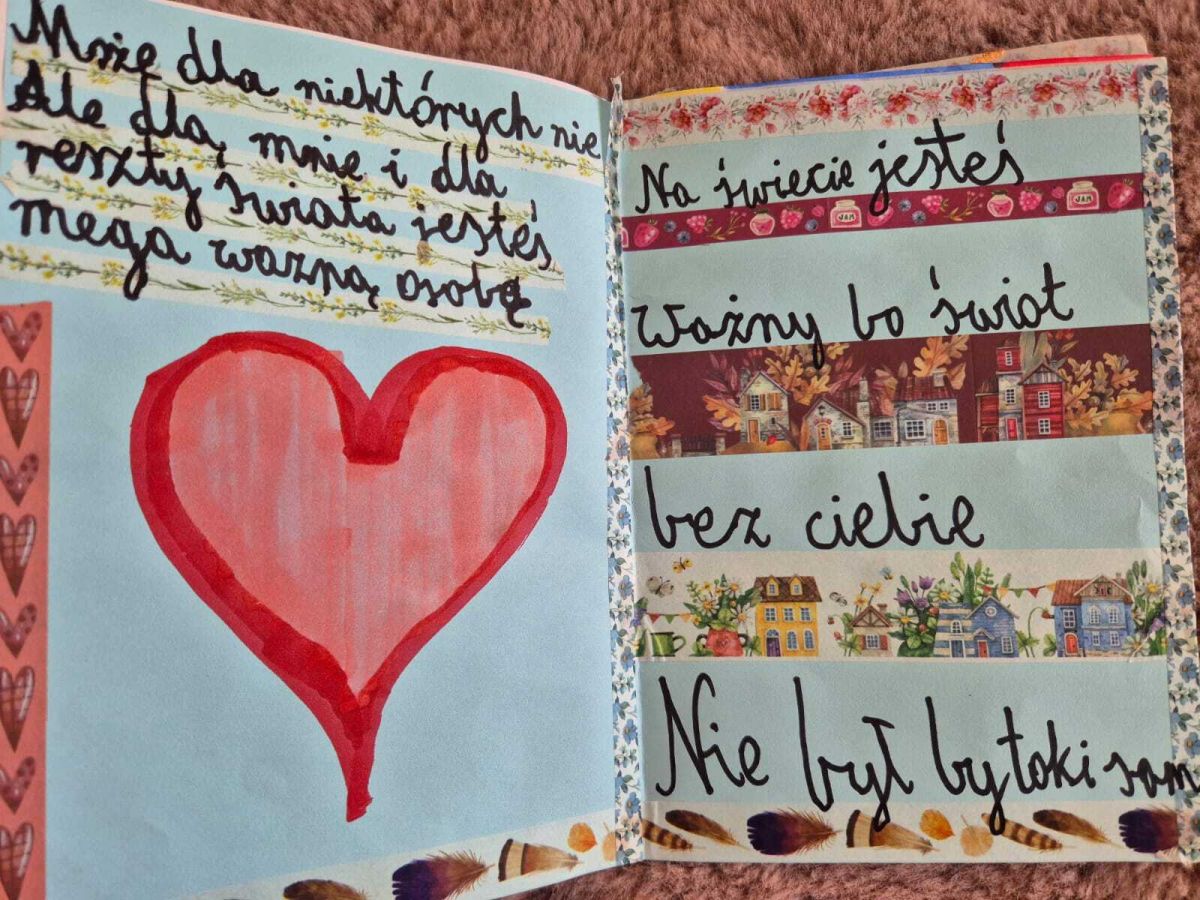 Może dla niektórych nie
Ale dla mnie i dla
reszty świata jesteś
mega ważną osobą
Na świecie jesteś
JAM
JAM
ważny bo świat
bez ciebie
Nie był by taki sam